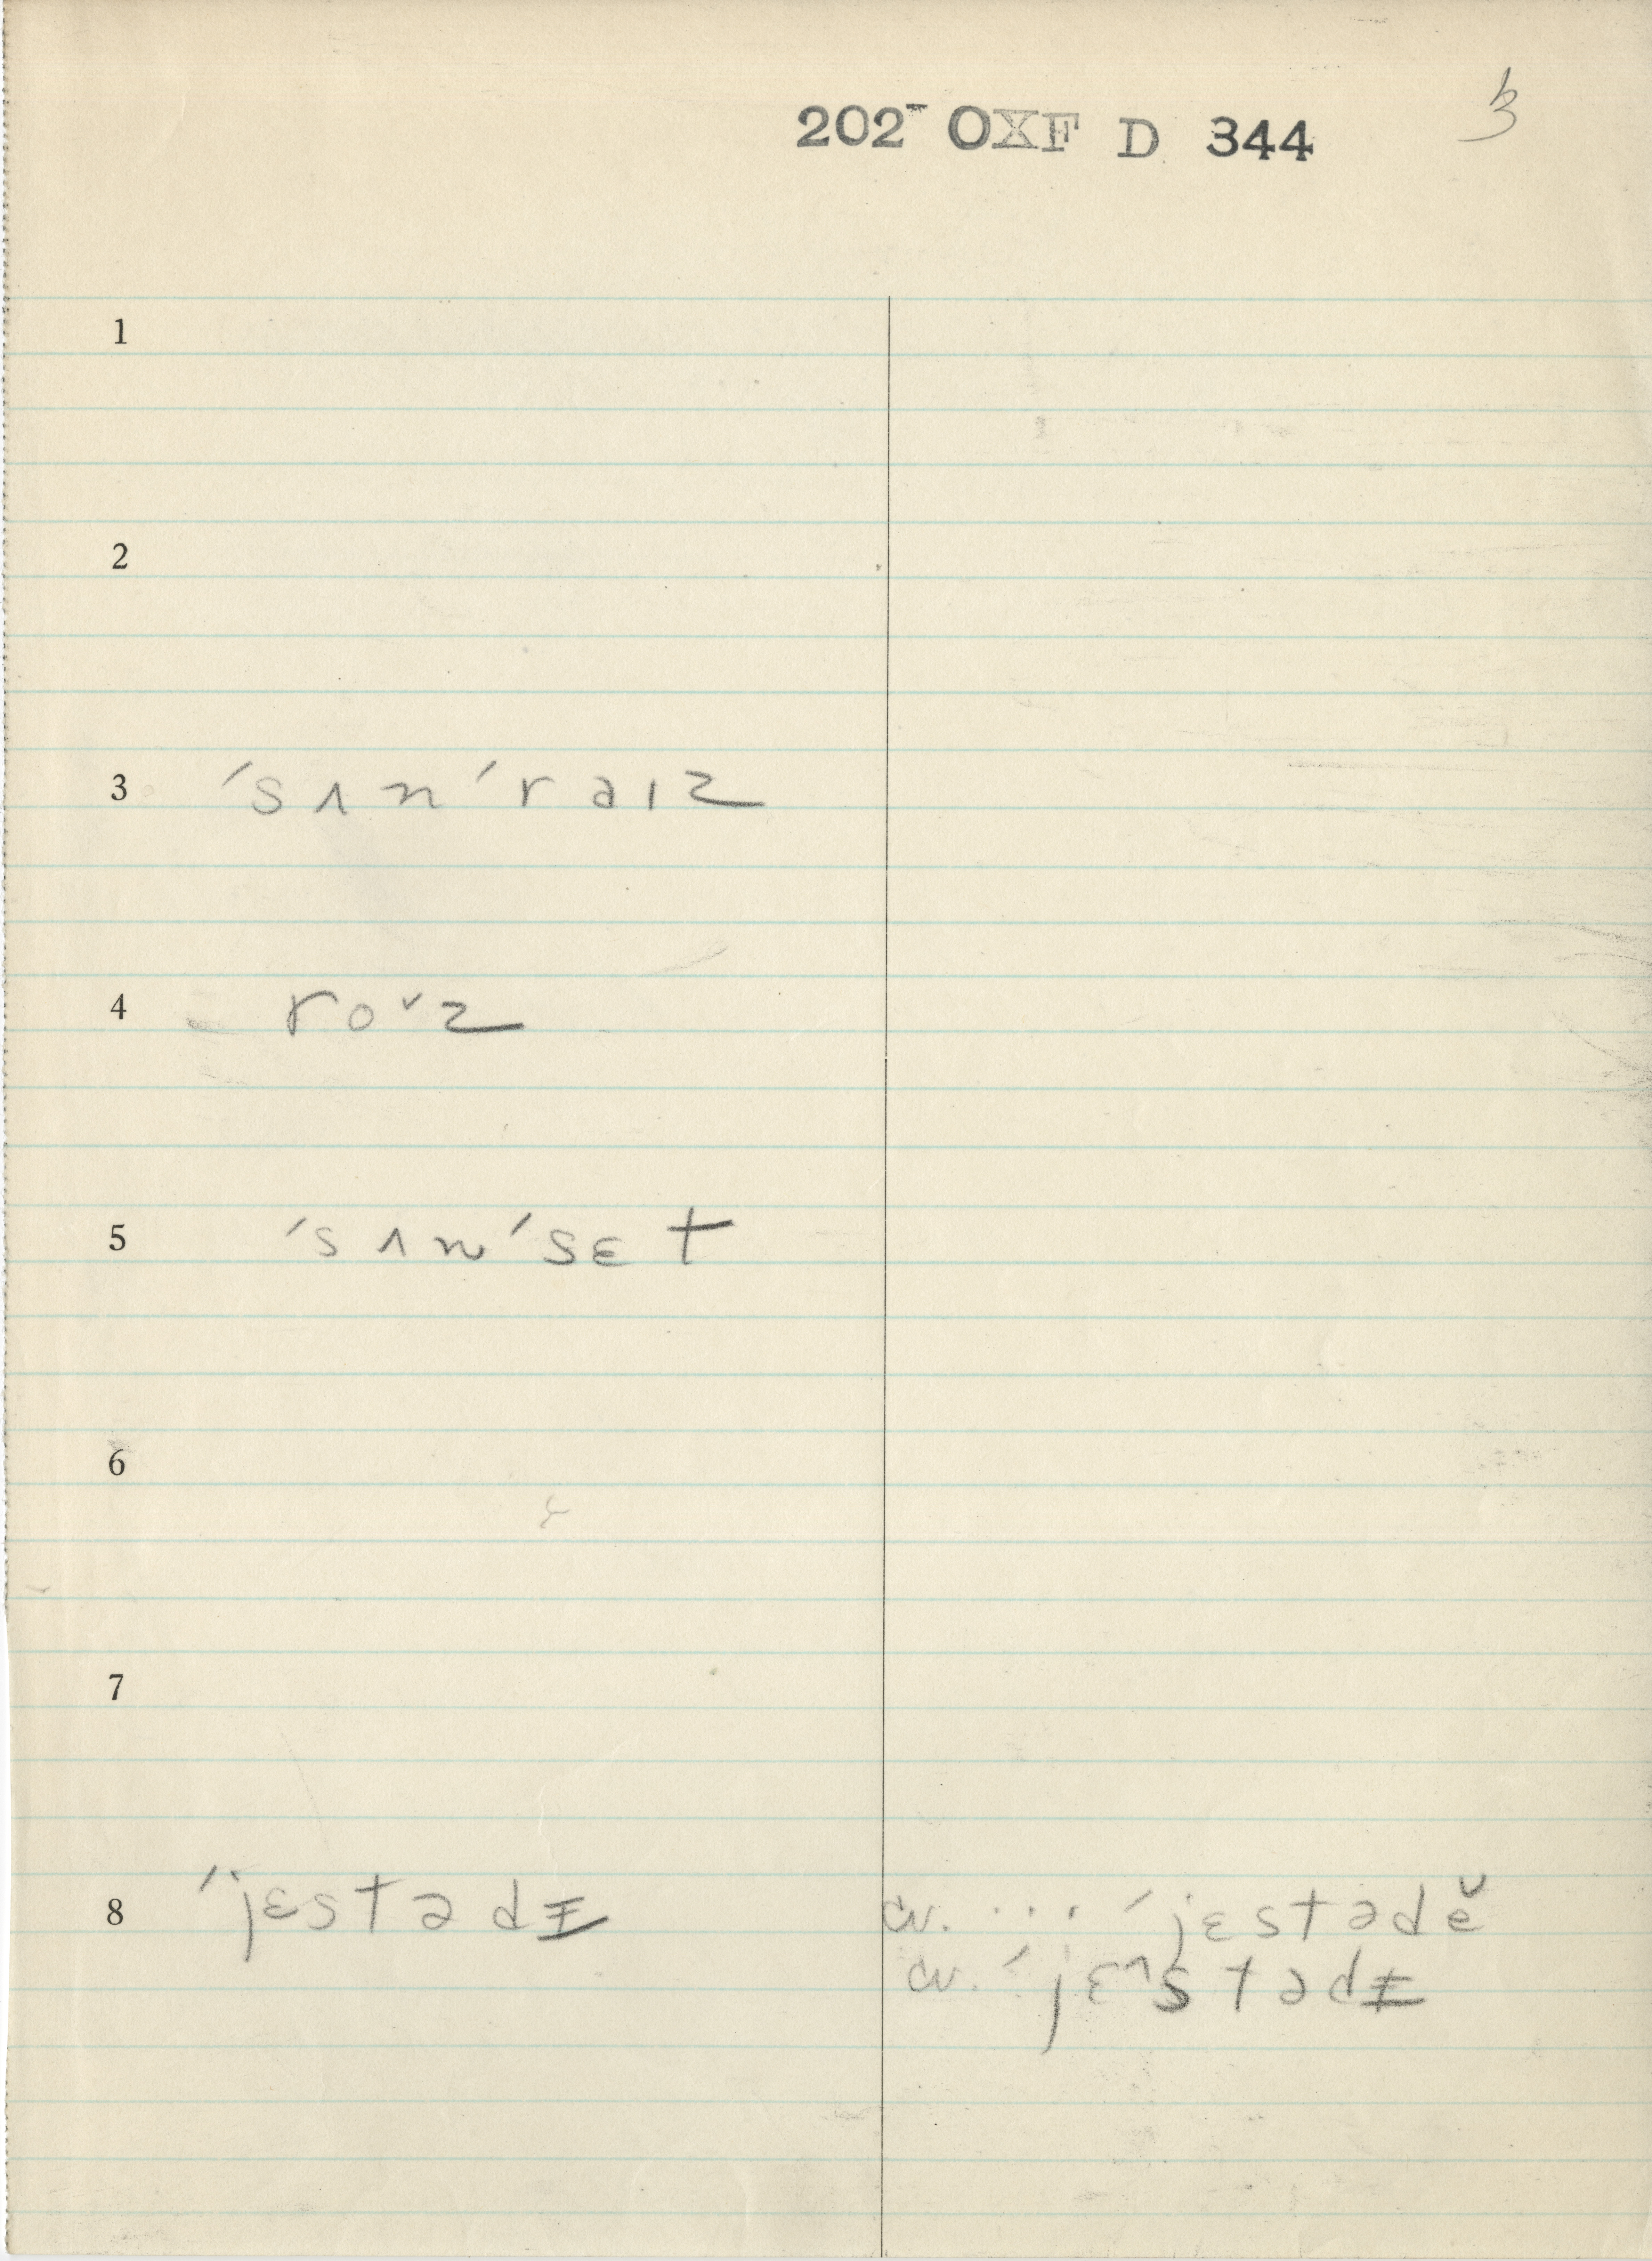 202- OXF D 344
3
1
2
3 ˈsʌnˈraɪz
4 roᵛz
5 ˈsʌnˈsɛt
6
7
8 ˈjɛstədɪ̵ cv. ... ˈjɛstədĕ
cv. ˈjɛ^stədɪ̵